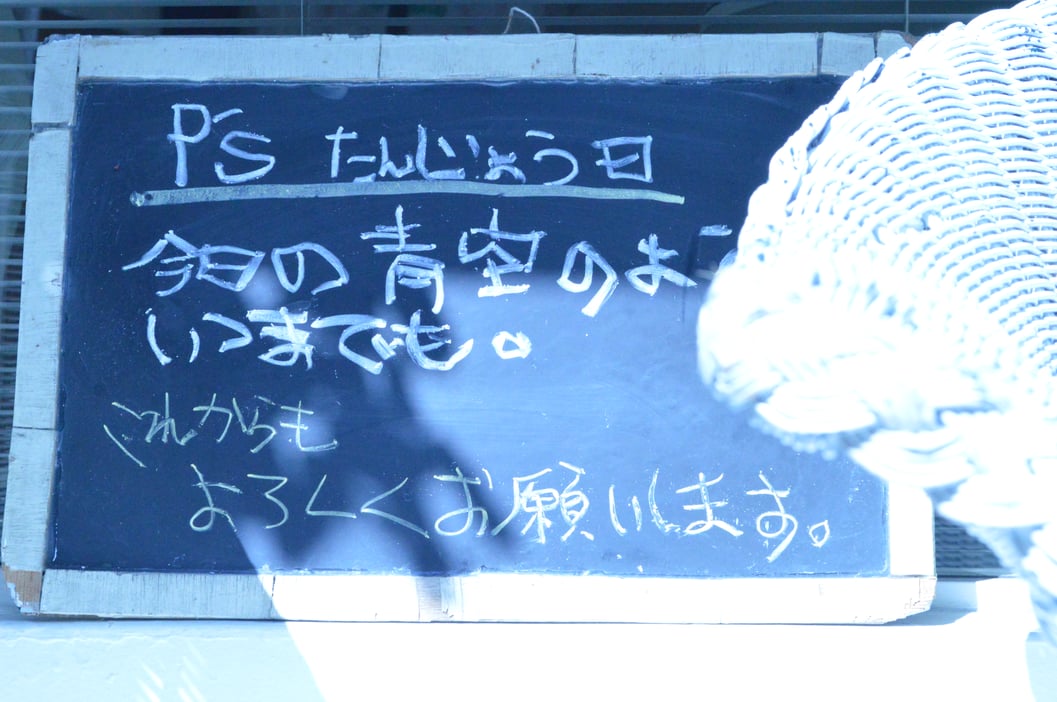 P'S たんじょう日
今日の青空のよう
いつまでも。
これからも
よろしくお願いします。